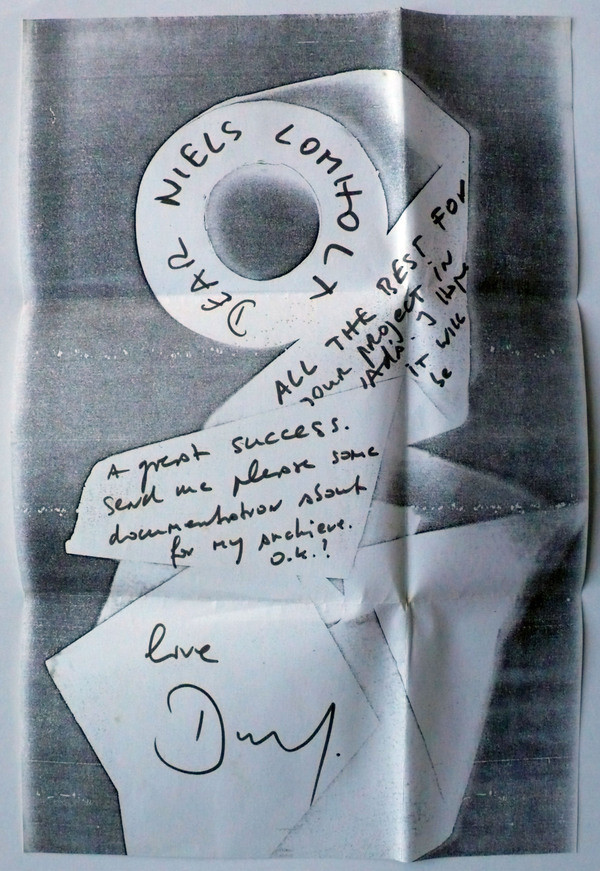 DEAR NIELS LOMHOLT
ALL THE BEST FOR
YOUR PROJECT IN
I hope
IT WILL
be
A great success.
Send me please some
documentation about
for my archieve.
O.K.?
love